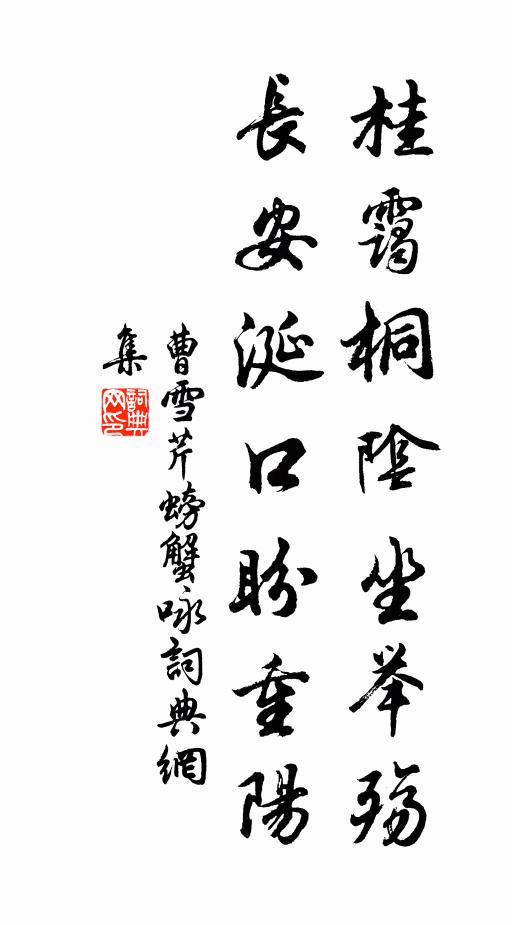 桂靄桐陰坐举殇
長安涎口盼重陽
曹雪芹螃蟹咏詞典網
集
詞典网印